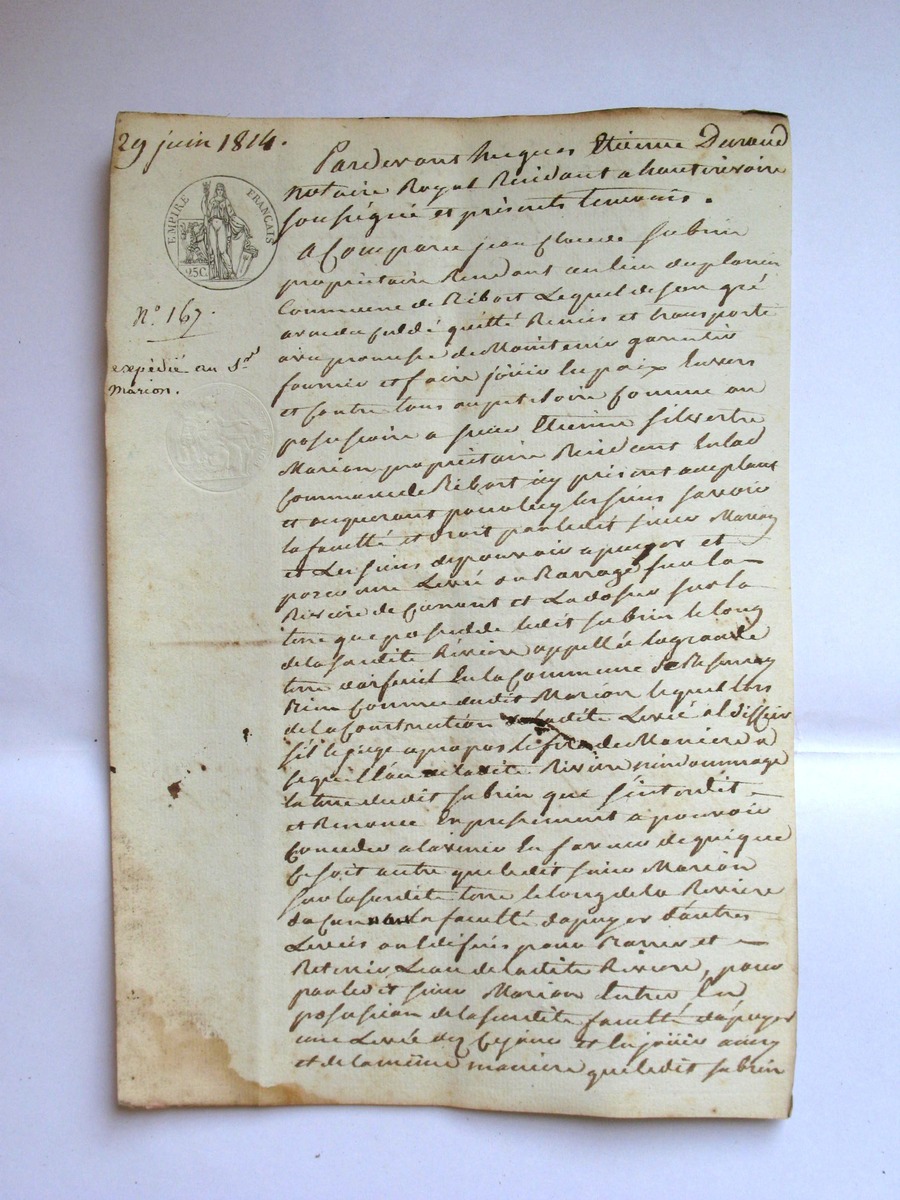 29 juin 1814.
EMPIRE FRANÇAIS
25C.
N.° 167.
expédié au S.r
Marion.
Pardevant hugues Etienne Durand
notaire Royal Residant a hauterivoire
soussigné et présents temoins.
A Comparu jean Claude Subrin
propriétaire Residant au lieu du
Commune de Ribost Lequel de son gré
a vendu cédé quitté Remis et transporté
avec promesse de Maintenir garantir
fournir et faire jouir en paix Envers
et Contre tous au petitoire Comme au
possessoire a sieur Etienne silvestre
Marion propriétaire Residant En lad
Commune de Ribost icy présent acceptant
et acquerant pour luy les siens savoir
la faculté et droit par ledit sieur Marion
et Les siens de pouvoir apuyer et
une Levée ou Barrage sur la
Riviere de et sur la
terre que possede ledit subrin le long
de la susdite Riviere appellée la grande
terre En la Commune de
Bien Connue dudit Marion lequel lors
de la Construction de ladite Levée
s'il le juge a propos de Maniere a
ce que l'Eau de ladite Riviere n'endommage
la terre dudit subrin que s'interdit
et Renonce Expressement a pouvoir
Conceder a l'avenir En faveur de qui que
Ce soit autre que ledit sieur Marion
sur la susdite terre le long de la Riviere
la faculté d'apuyer d'autres
Levées ou Edifices pour Barrer et
Retenir L'eau de ladite Riviere, pour
par ledit sieur Marion Entrer En
possession de la susdite faculté d'apuyer
une Levée dez Ce jour et En jouir ainsy
et de la même maniere que ledit subrin